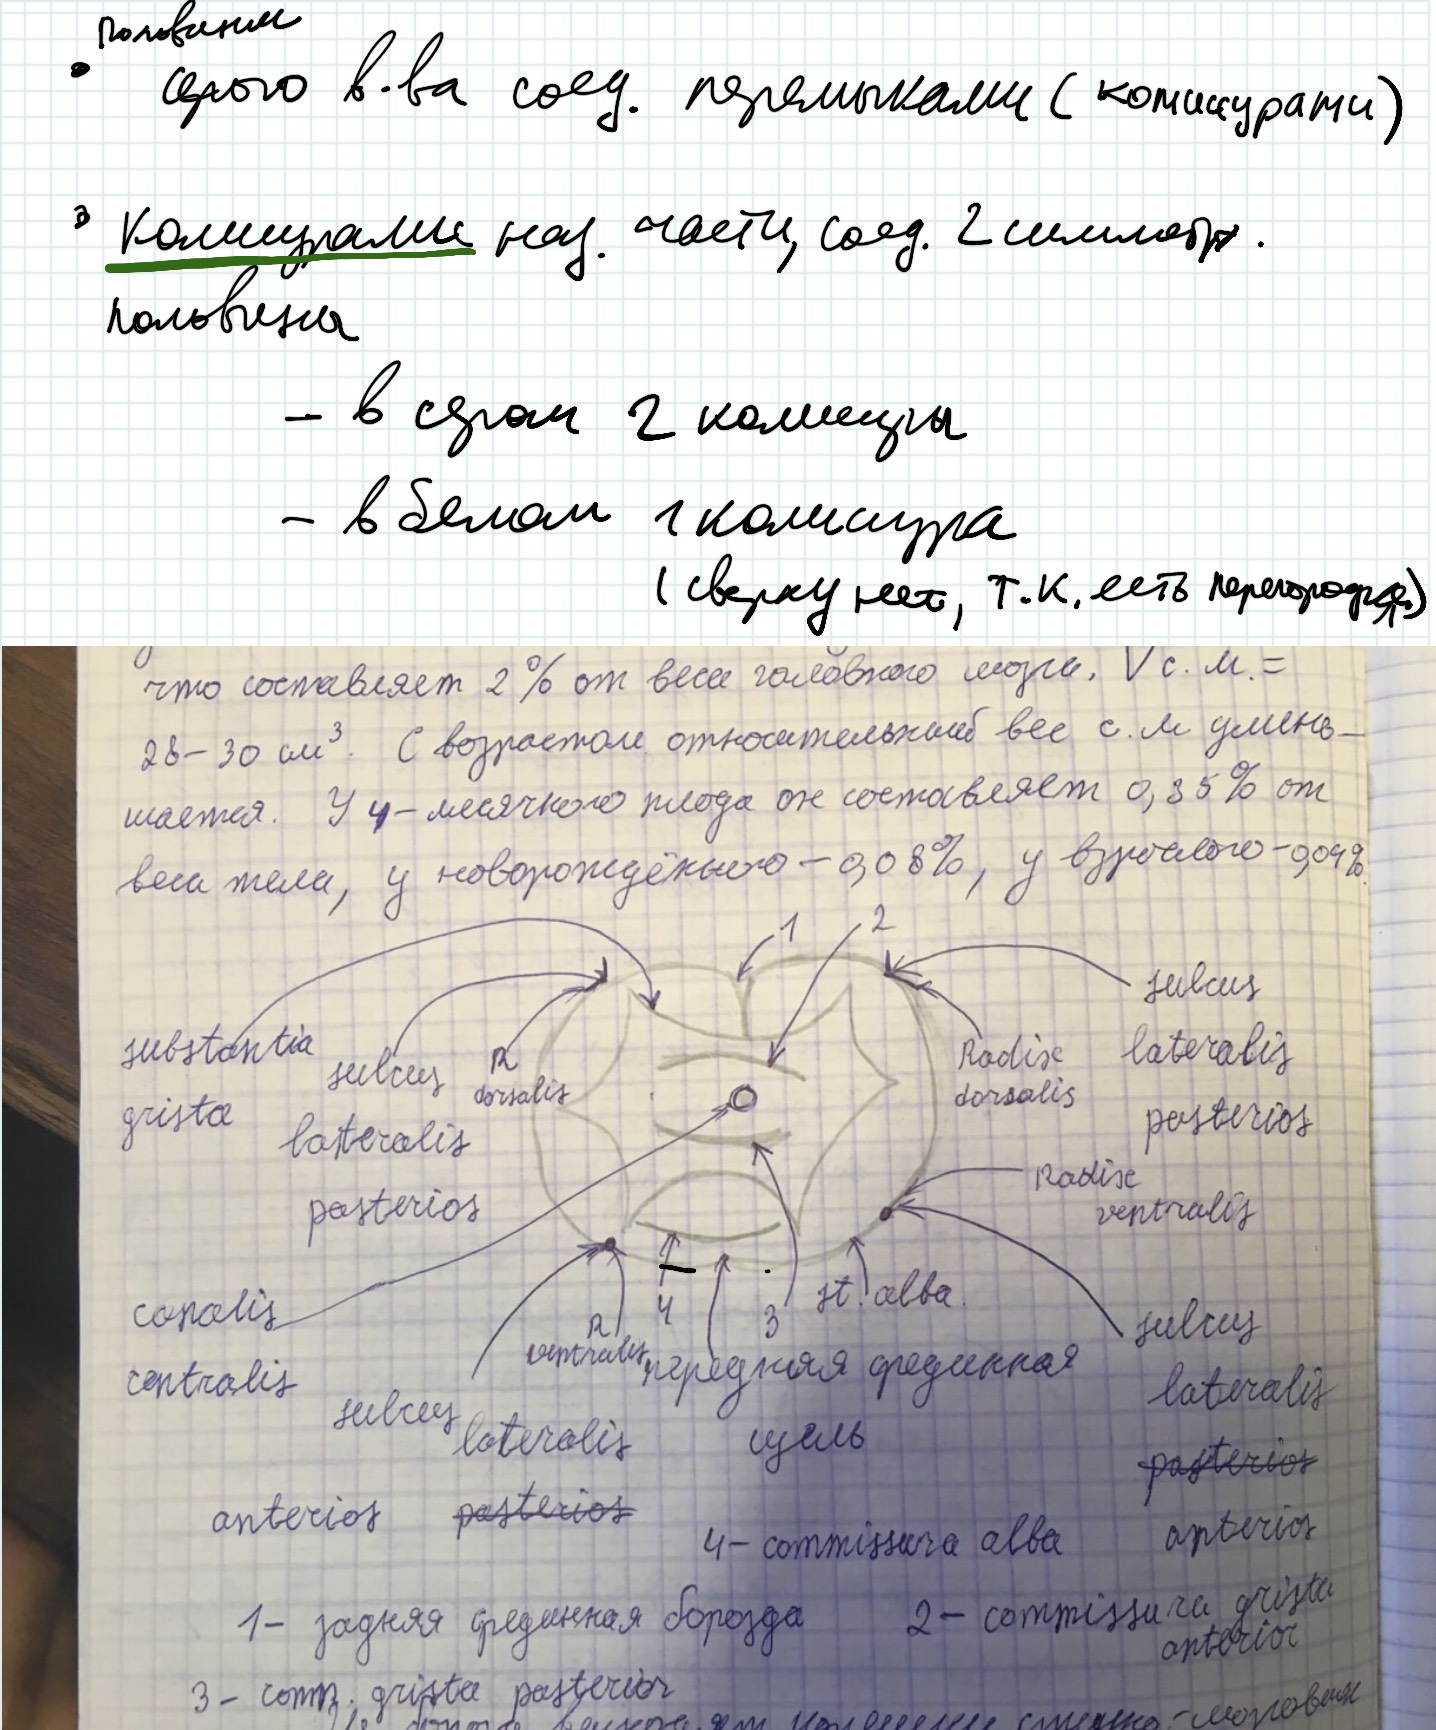 половины
серого в-ва соед. перемыками (комиссурами)
Комиссурами наз. части, соед. 2 симметр.
половины
- в сером 2 комиссуры
- в белом 1 комиссура
(сверху нет, т.к. есть перегородка)
что составляет 2% от веса головного мозга. V с.м. =
28-30 см³. С возрастом относительный вес с.м умень-
шается. У 4-месячного плода он составляет 0,35% от
веса тела, у новорождённого - 0,08%, у взрослого - 0,04%.
1
2
substantia
grista
sulcus
lateralis
posterios
R
dorsalis
Radix
dorsalis
sulcus
lateralis
posterios
Radix
ventralis
canalis
centralis
4
3
st. alba.
R
ventralis
передняя срединная
щель
sulcus
lateralis
posterios
anterios
sulcus
lateralis
posterios
anterios
4- commissura alba
1- задняя срединная борозда
2- commissura grista
anterior
3- comm. grista posterior